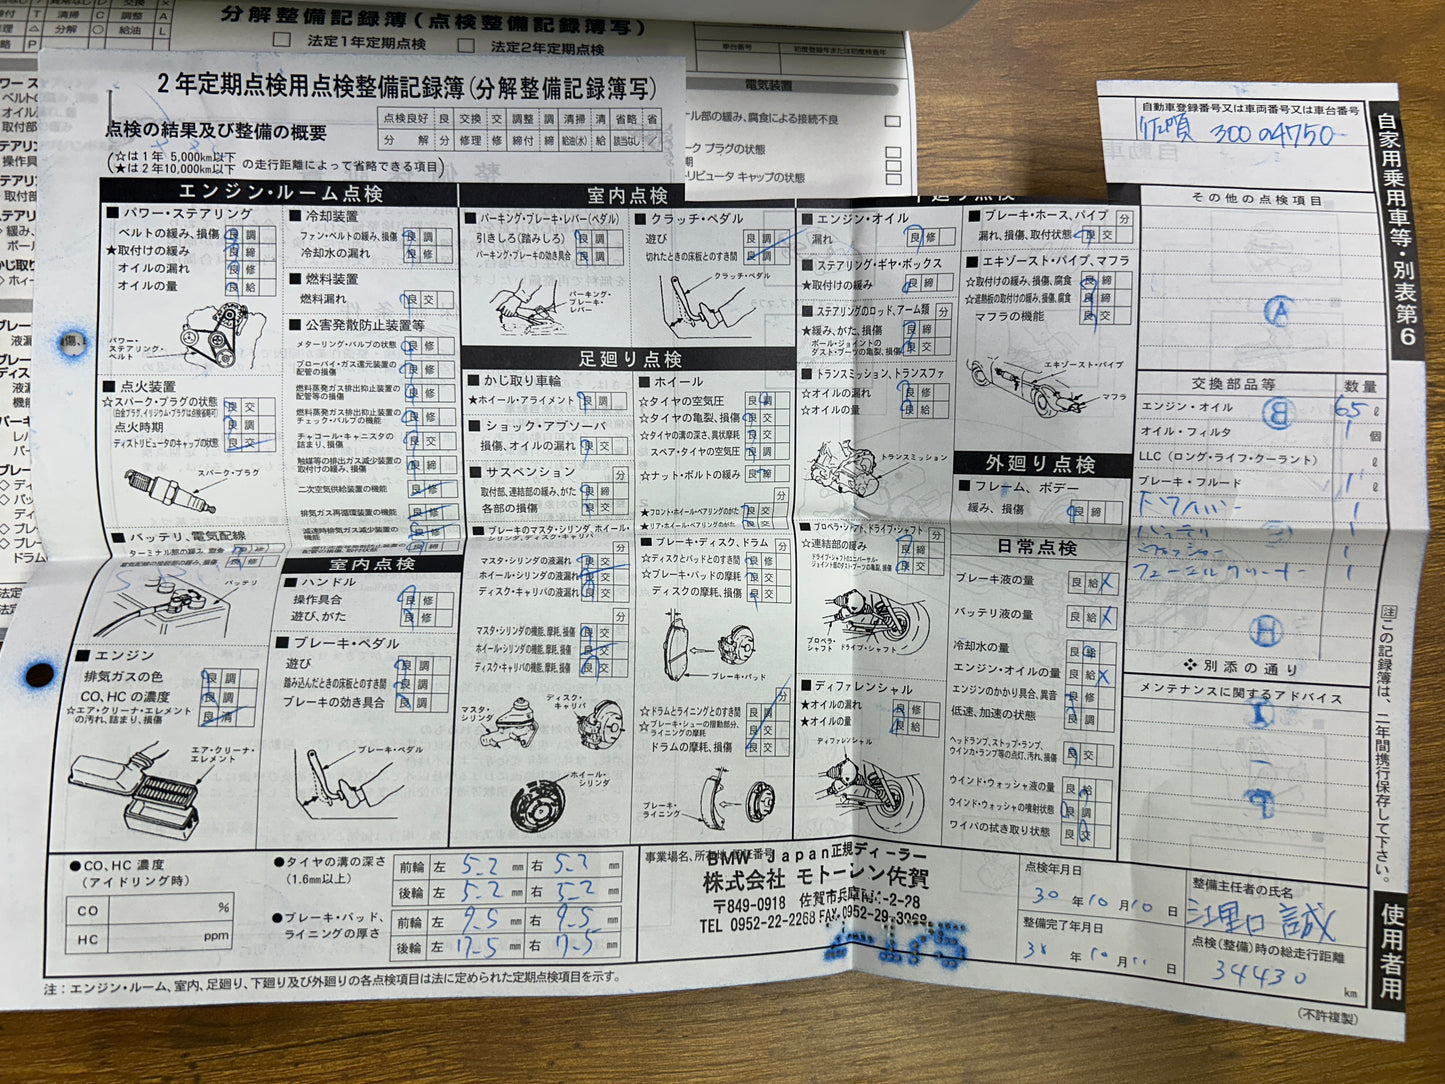 分解整備記録簿(点検整備記録簿写)
法定1年定期点検
法定2年定期点検
車台番号
初度登録年または初度検査年
電気装置
ル部の緩み、腐食による接続不良
ーク プラグの状態
リビュータ キャップの状態
2年定期点検用点検整備記録簿(分解整備記録簿写)
点検の結果及び整備の概要
点検良好 良 交換 交 調整 調 清掃 清 省略 省
分解 分 修理 修 締付 締 給油(水) 給 該当なし
(☆は1年 5,000km以下
★は2年10,000km以下 の走行距離によって省略できる項目)
エンジン・ルーム点検
■ パワー・ステアリング
ベルトの緩み、損傷 良 調
★取付けの緩み 良 締
オイルの漏れ 良 修
オイルの量 良 給
パワー・ステアリング・ベルト
■ 点火装置
☆スパーク・プラグの状態 良 交
(白金プラグ、イリジウム・プラグは点検省略可)
点火時期 良 調
ディストリビュータのキャップの状態 良 交
スパーク・プラグ
■ バッテリ、電気配線
ターミナル部の緩み、腐食 良 修
電気配線の接続部の緩み、損傷
バッテリ
■ エンジン
排気ガスの色 良 調
CO、HCの濃度 良 調
☆エア・クリーナ・エレメントの汚れ、詰まり、損傷 良 清
エア・クリーナ・エレメント
■ 冷却装置
ファン・ベルトの緩み、損傷 良 調
冷却水の漏れ 良 修
■ 燃料装置
燃料漏れ 良 交
■ 公害発散防止装置等
メターリング・バルブの状態 良 修
ブローバイ・ガス還元装置の配管の損傷 良 修
燃料蒸発ガス排出抑止装置の配管等の損傷 良 修
燃料蒸発ガス排出抑止装置のチェック・バルブの機能 良 交
チャコール・キャニスタの詰まり、損傷 良 交
触媒等の排出ガス減少装置の取付けの緩み、損傷 良 締
二次空気供給装置の機能 良 修
排気ガス再循環装置の機能 良 修
減速時排気ガス減少装置の機能 良 修
配管の損傷、取付状態 良 修
室内点検
■ ハンドル
操作具合 良 修
遊び、がた 良 修
■ ブレーキ・ペダル
遊び 良 調
踏み込んだときの床板とのすき間 良 調
ブレーキの効き具合 良 調
ブレーキ・ペダル
室内点検
■ パーキング・ブレーキ・レバー(ペダル)
引きしろ(踏みしろ) 良 調
パーキング・ブレーキの効き具合 良 調
パーキング・ブレーキ・レバー
■ クラッチ・ペダル
遊び 良 調
切れたときの床板とのすき間 良 調
クラッチ・ペダル
足廻り点検
■ かじ取り車輪
★ホイール・アライメント 良 調
■ ショック・アブソーバ
損傷、オイルの漏れ 良 交
■ サスペンション 分
取付部、連結部の緩み、がた 良 締
各部の損傷 良 交
■ ブレーキのマスタ・シリンダ、ホイール・シリンダ、ディスク・キャリパ 分
マスタ・シリンダの液漏れ 良 交
ホイール・シリンダの液漏れ 良 交
ディスク・キャリパの液漏れ 良 交
分
マスタ・シリンダの機能、摩耗、損傷 良 交
ホイール・シリンダの機能、摩耗、損傷 良 交
ディスク・キャリパの機能、摩耗、損傷 良 交
マスタ・シリンダ
ディスク・キャリパ
ホイール・シリンダ
■ ホイール
☆タイヤの空気圧 良
☆タイヤの亀裂、損傷 良 交
☆タイヤの溝の深さ、異状摩耗 良 交
スペア・タイヤの空気圧 良
☆ナット・ボルトの緩み 良 締
分
★フロント・ホイール・ベアリングのがた 良 交
★リア・ホイール・ベアリングのがた 良 交
■ ブレーキ・ディスク、ドラム 分
☆ディスクとパッドとのすき間 良 交
☆ブレーキ・パッドの摩耗 良 交
ディスクの摩耗、損傷 良 交
ブレーキ・パッド
分
☆ドラムとライニングとのすき間 良 調
☆ブレーキ・シューの摺動部分、ライニングの摩耗 良 交
ドラムの摩耗、損傷 良 交
ブレーキ・ライニング
■ エンジン・オイル
漏れ 良 修
■ ステアリング・ギヤ・ボックス
★取付けの緩み 良 締
■ ステアリングのロッド、アーム類
★緩み、がた、損傷 良 締
ボール・ジョイントのダスト・ブーツの亀裂、損傷 良 交
■ トランスミッション、トランスファ
☆オイルの漏れ 良 修
☆オイルの量 良 給
トランスミッション
■ プロペラ・シャフト、ドライブ・シャフト
☆連結部の緩み 良 締
ドライブ・シャフトのユニバーサル・ジョイント部のダスト・ブーツの亀裂、損傷 良 交
プロペラ・シャフト ドライブ・シャフト
■ ディファレンシャル
★オイルの漏れ 良 修
★オイルの量 良 給
ディファレンシャル
■ ブレーキ・ホース、パイプ 分
漏れ、損傷、取付状態 良 交
■ エキゾースト・パイプ、マフラ
☆取付けの緩み、損傷、腐食 良 締
☆遮熱板の取付けの緩み、損傷、腐食 良 締
マフラの機能 良 交
エキゾースト・パイプ
マフラ
外廻り点検
■ フレーム、ボデー
緩み、損傷 良 締
日常点検
ブレーキ液の量 良 給
バッテリ液の量 良 給
冷却水の量 良 給
エンジン・オイルの量 良 給
エンジンのかかり具合、異音 良 修
低速、加速の状態 良 調
ヘッドランプ、ストップ・ランプ、ウインカ・ランプ等の点灯、汚れ、損傷 良 交
ウインド・ウォッシャ液の量 良 給
ウインド・ウォッシャの噴射状態 良 調
ワイパの拭き取り状態 良 交
自動車登録番号又は車両番号又は車台番号
佐賀 300 の 4750
自家用乗用車等・別表第6
その他の点検項目
Ⓐ
交換部品等 数量
エンジン・オイル Ⓑ 6.5 ℓ
オイル・フィルタ 1 個
LLC(ロング・ライフ・クーラント) ℓ
ブレーキ・フルード 1 ℓ
1
1
1
フューエルクリーナー 1
Ⓗ
❖別添の通り
メンテナンスに関するアドバイス
注 この記録簿は、二年間携行保存して下さい。
使用者用
●CO、HC 濃度
(アイドリング時)
CO %
HC ppm
●タイヤの溝の深さ
(1.6mm以上)
前輪 左 5.2 mm 右 5.2 mm
後輪 左 5.2 mm 右 5.2 mm
●ブレーキ・パッド、ライニングの厚さ
前輪 左 9.5 mm 右 9.5 mm
後輪 左 mm 右 mm
事業場名、所在地、認証番号
BMW Japan正規ディーラー
株式会社 モトーレン佐賀
〒849-0918 佐賀市兵庫南
TEL 0952-22-2268 FAX 0952-29-3068
点検年月日
30 年 10 月 10 日
整備完了年月日
30 年 10 月 11 日
整備主任者の氏名
江里口 誠
点検(整備)時の総走行距離
34430 km
注:エンジン・ルーム、室内、足廻り、下廻り及び外廻りの各点検項目は法に定められた定期点検項目を示す。
(不許複製)